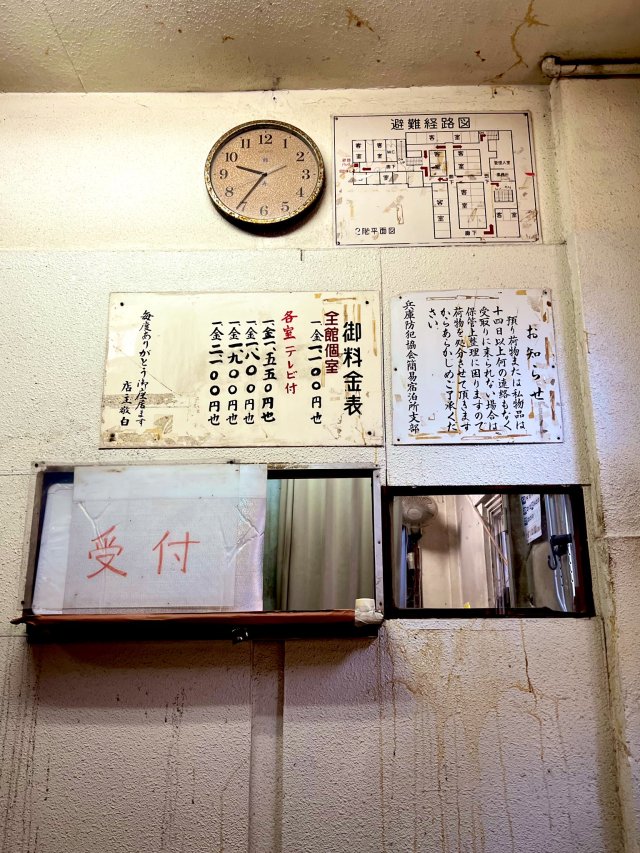 避難経路図
2階平面図
12
1
2
3
4
5
6
7
8
9
10
11
御料金表
全館個室
一金一一〇〇円也
各室テレビ付
一金一、五五〇円也
一金一八〇〇円也
一金一九〇〇円也
一金二一〇〇円也
毎度ありがとう御座居ます
店主敬白
お知らせ
預り荷物または私物品は
十四日以上何の連絡もなく
受取りに来られない場合は
保管上整理に困りますので
荷物を処分させて頂きます
からあらかじめご了承くだ
さい。
兵庫防犯協会簡易宿泊所支部
受付